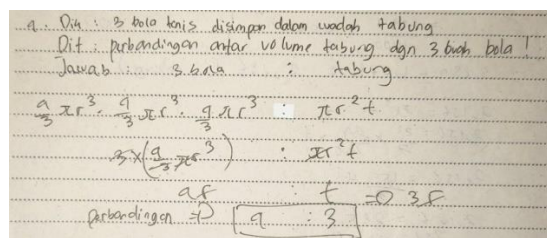 9. Dik : 3 bola tenis disimpan dalam wadah tabung
Dit : perbandingan antar volume tabung dgn 3 buah bola !
Jawab : 3 bola : tabung
4/3 πr³ . 4/3 πr³ . 4/3 πr³ : πr²t
3 × (4/3 πr³) : πr²t
4r : t => 3r
Perbandingan => 4 : 3